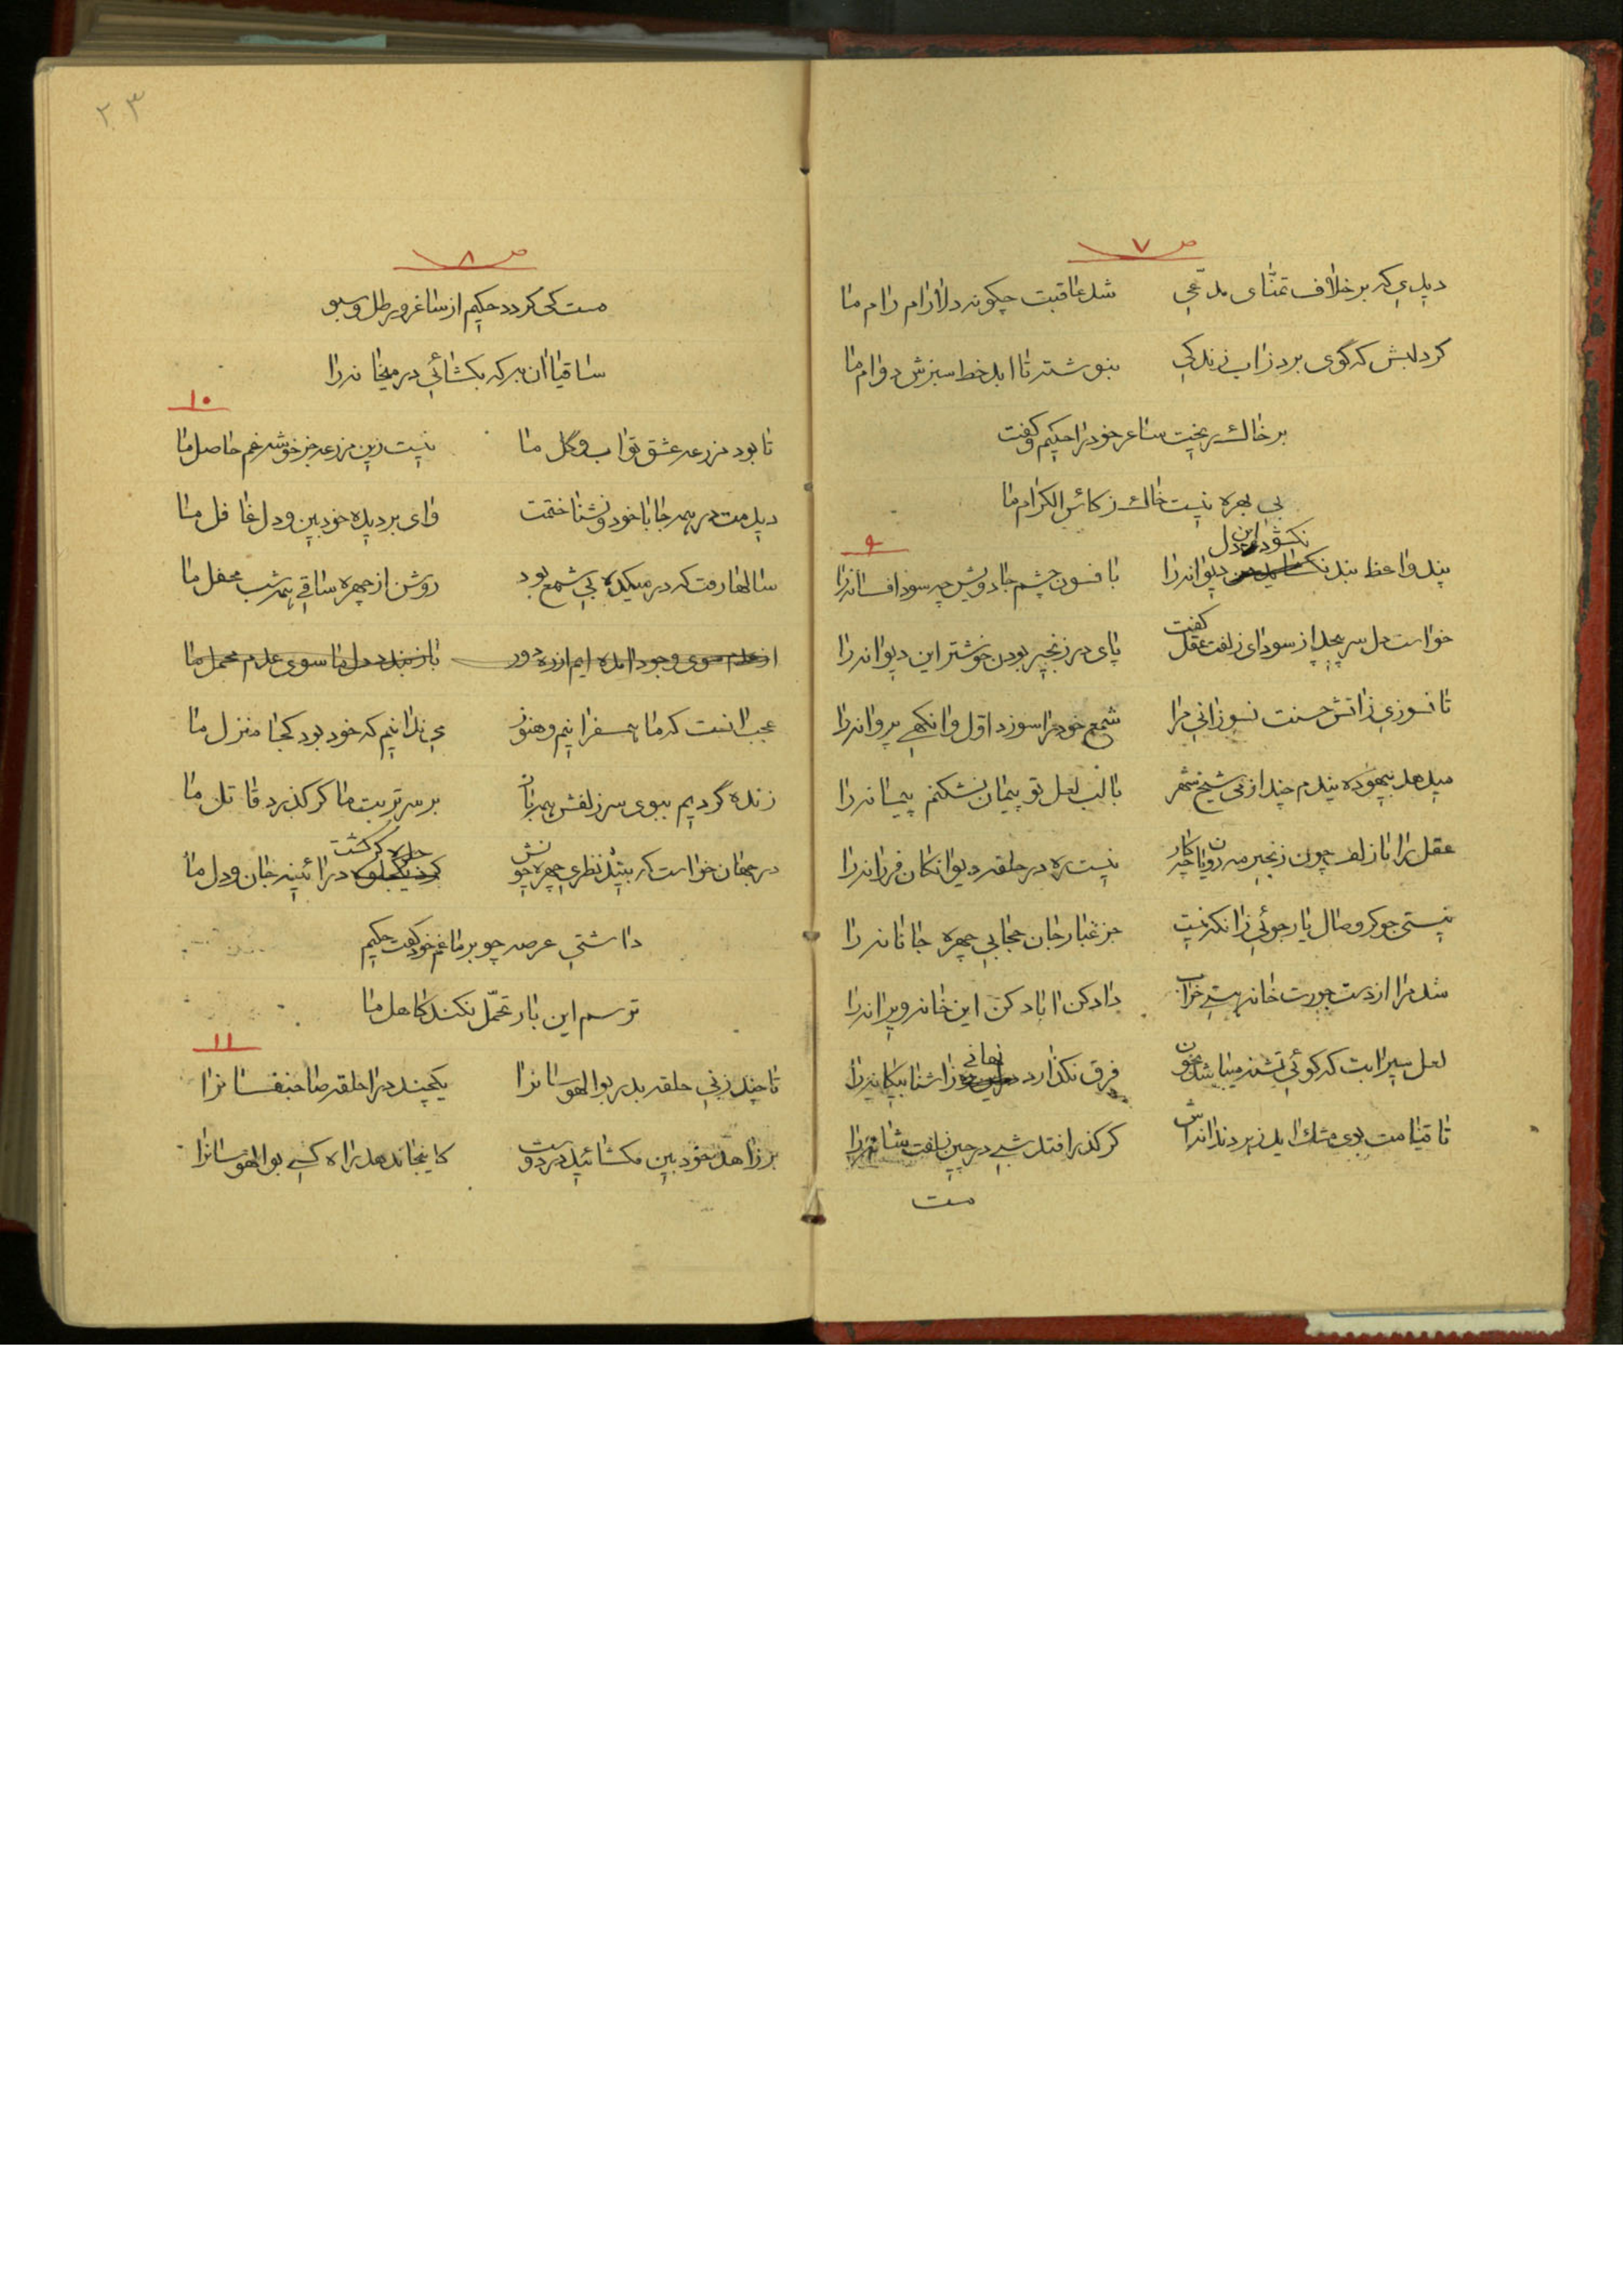 ص ۷
دیدی که برخلاف تمنّای مدّعی شد عاقبت چگونه دلارام رام ما
کرد لبش که گوی برد زاب زندکی بنوشته تا ابد خط سبزش دوام ما
بر خاک ریخت ساغر خود را حکیم و گفت
بی بهره نیست خاک ز کاس الکرام ما
۹
نکشود این دل
پند واعظ بند دیوانه را با فسون چشم جادویش چه سود افسانه را
خواست دل سر پیچد از سودای زلفت عقل گفت پای در زنجیر بودن خوشتر این دیوانه را
تا نسوزی زاتش حسنت نسوزانی مرا شمع خود را سوزد اوّل وانکهی پروانه را
میدهد بیهوده پندم چند از می شیخ شهر با لب لعل تو پیمان نشکنم پیمانه را
عقل را با زلف چون زنجیر مه رویان چکار نیست ره در حلقه دیوانکان فرزانه را
نیستی جو کر وصال یار جوئی زانکه نیست جز غبار جان حجابی چهره جانانه را
شد مرا از دست جورت خانه هستی خراب داد کن اباد کن این خانه ویرانه را
لعل سیرابت که کوئی تشنه میباشد بخون فرق نکذارد نهانی زاشنا بیکانه را
تا قیامت بوی مشک اید ز هر دندانه اش کر کذر افتد شبی در چین زلفت شانه را
مست
۲۳
ص ۸
مست کی کردد حکیم از ساغر و رطل و سبو
ساقیا ان به که بکشائی در میخانه را
۱۰
تا بود مزرعه عشق تو اب و گل ما نیست زین مزرعه جز خوشه غم حاصل ما
دیدمت در همه جا با خود و نشناختمت وای بر دیده خودبین و دل غافل ما
سالها رفت که در میکده بی شمع بود روشن از چهره ساقی همه شب محفل ما
از عدم سوی وجود امده ایم از ره دور باز بندد دل ما سوی عدم محمل ما
عجب انست که ما همسفرانیم و هنوز می ندانیم که خود بود کجا منزل ما
زنده گردیم ببوی سر زلفش همه باز بر سر تربت ما کر کذرد قاتل ما
در جهان خواست که بیند نظری چهره چو جلوه کر کشت در ائینه جان و دل ما
داشتی عرصه چو بر ما غم خود کفت حکیم
ترسم این بار تحمّل نکند کاهل ما
۱۱
تا چند زنی حلقه بدر بوالهوسانرا یکچند درا حلقه صاحبنفسانرا
بر زاهد خودبین مکشائید در دوست کاینجا ندهد راه کسی بوالهوسانرا